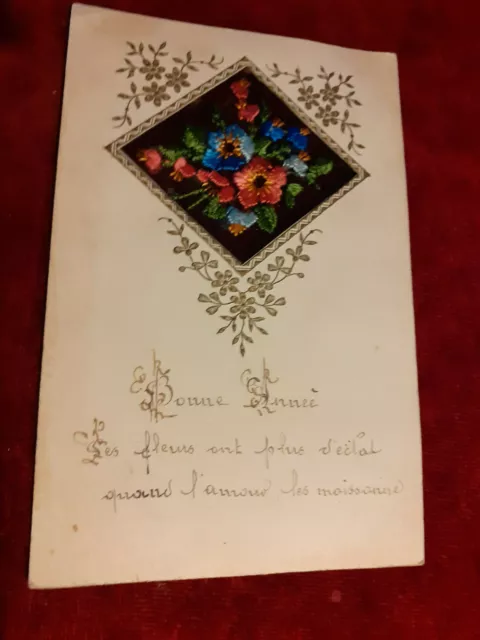 Bonne Année
Les fleurs ont plus d'éclat
quand l'amour les moissonne